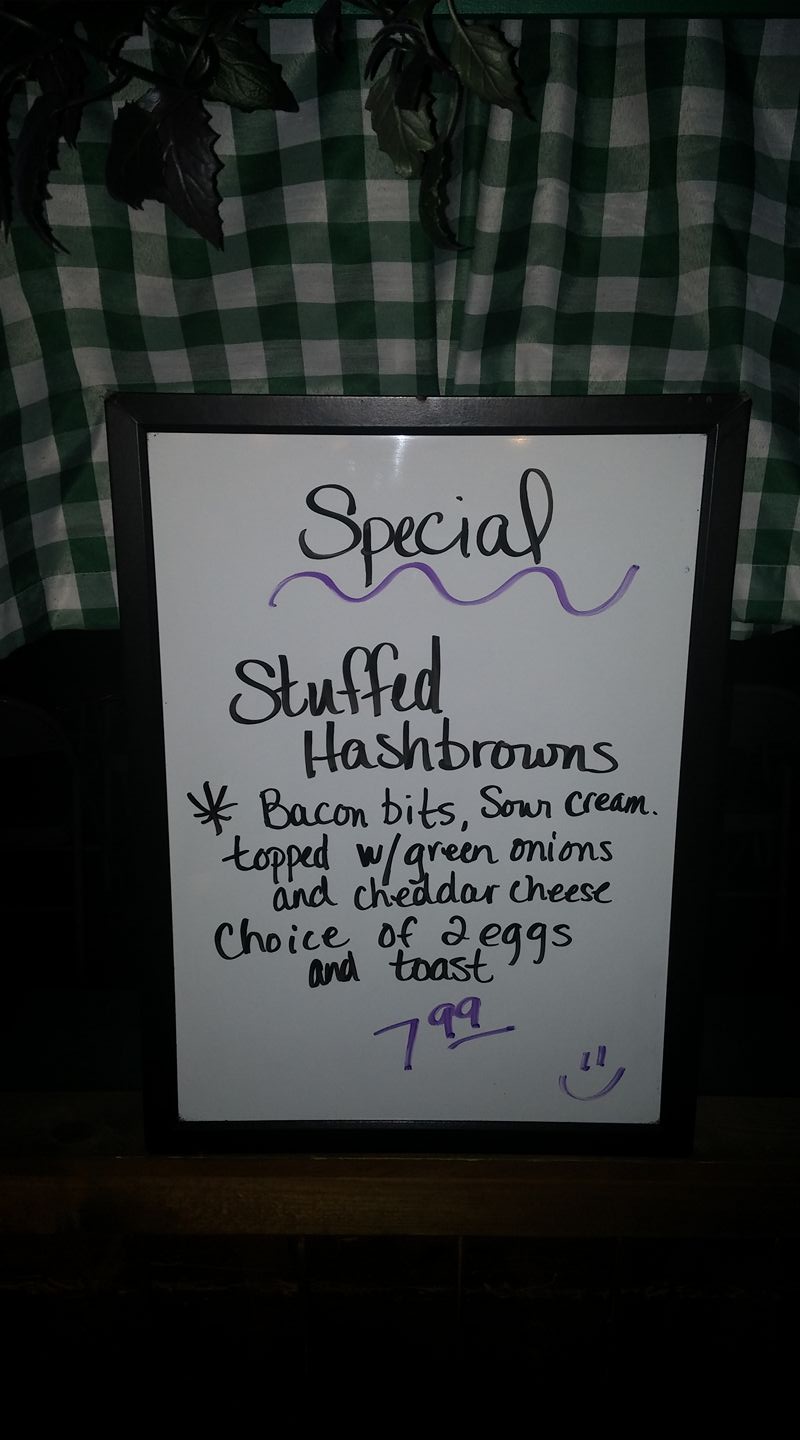 Special
Stuffed
Hashbrowns
* Bacon bits, Sour cream.
topped w/green onions
and cheddar cheese
Choice of 2 eggs
and toast
7 99